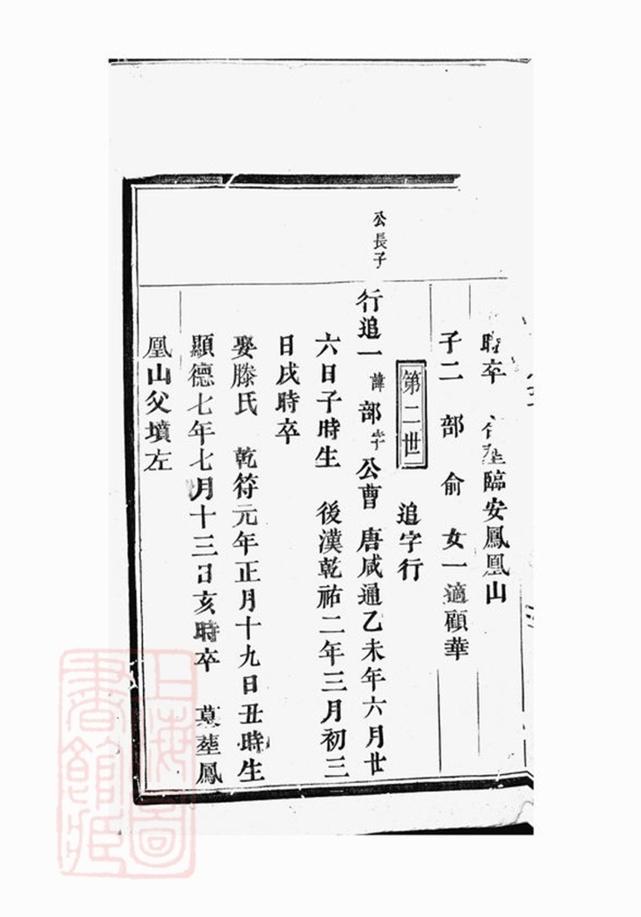 時卒　合塟臨安鳳凰山
子二　部　俞　女一適顧華
第二世　追字行
公長子
行追一　諱部字公曹　唐咸通乙未年六月廿
六日子時生　後漢乾祐二年三月初三
日戌時卒
娶滕氏　乾符元年正月十九日丑時生
顯德七年七月十三日亥時卒　墓塟鳳
凰山父墳左
上海圖書館藏